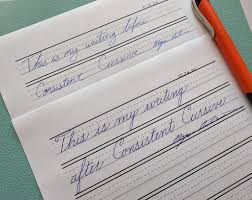 This is my writing before
Consistent Cursive
This is my writing
after Consistent Cursive